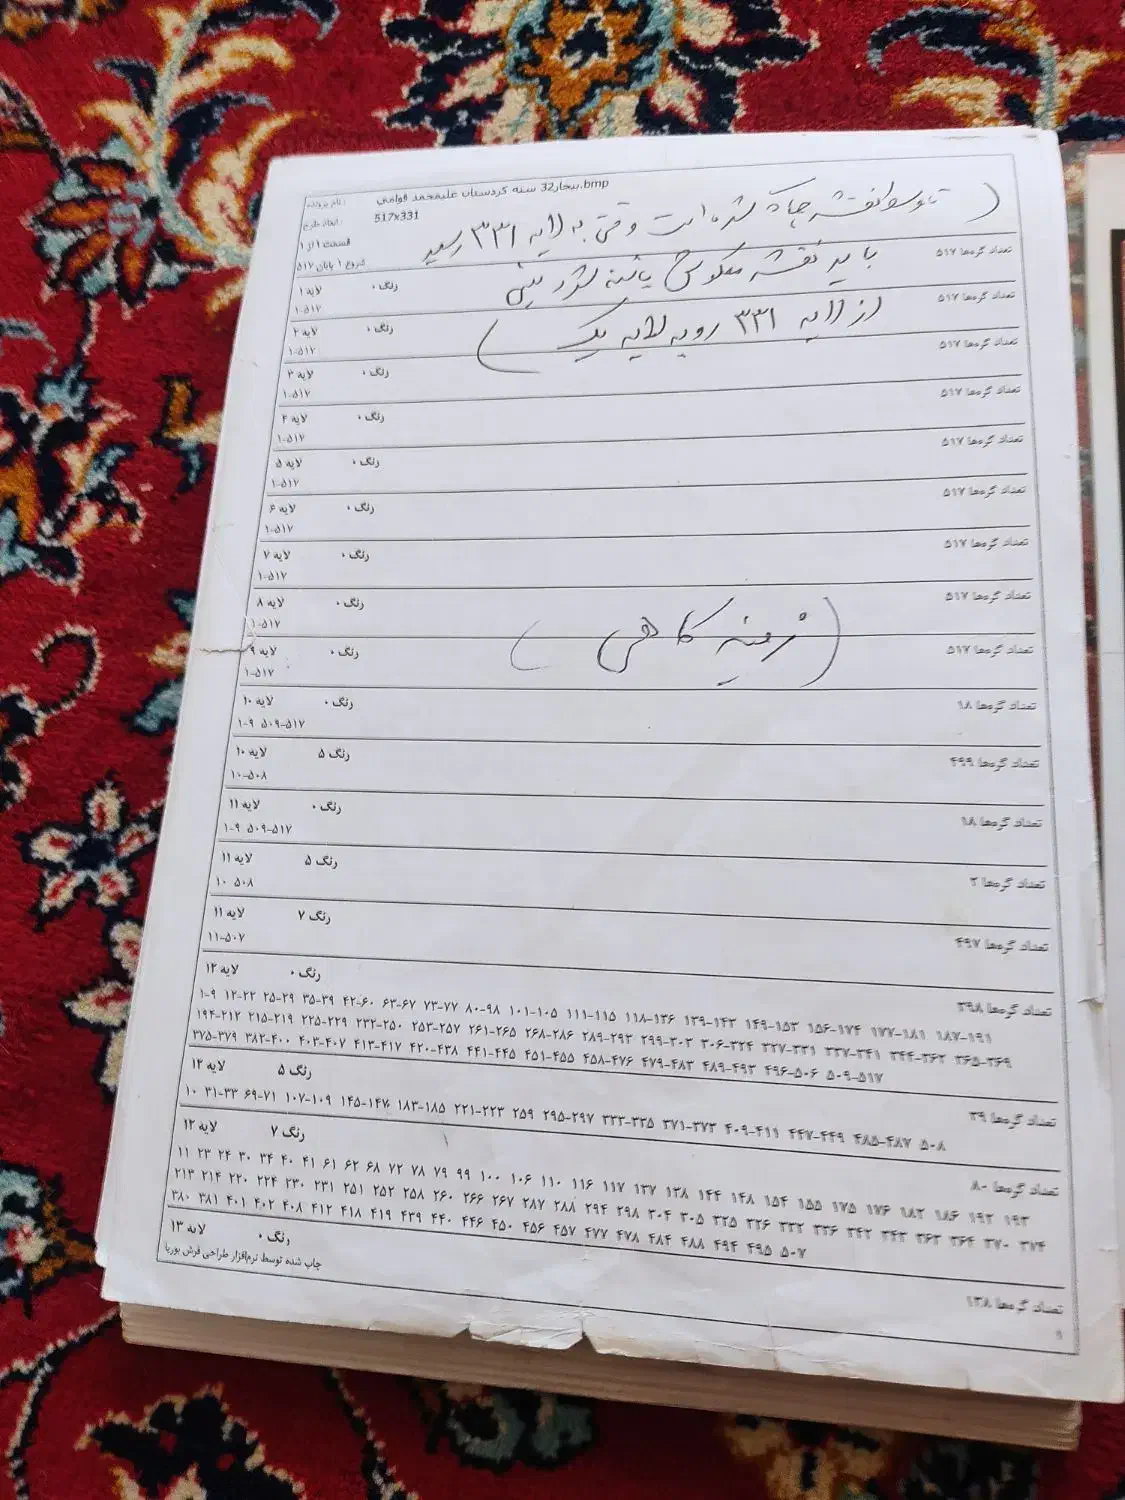 نام پرونده: بیجار32 سنه کردستان علیمحمد قوامی.bmp
ابعاد طرح: 517x331
قسمت ۱ از ۱
شروع ۱ پایان ۵۱۷
( تا وسط نقشه چاپ شده است وقتی به لایه ۳۳۱ رسید
باید نقشه معکوس بافته شود یعنی
از لایه ۳۳۱ رو به لایه یک )
لایه ۱ رنگ ۰ تعداد گره‌ها ۵۱۷
۱-۵۱۷
لایه ۲ رنگ ۰ تعداد گره‌ها ۵۱۷
۱-۵۱۷
لایه ۳ رنگ ۰ تعداد گره‌ها ۵۱۷
۱-۵۱۷
لایه ۴ رنگ ۰ تعداد گره‌ها ۵۱۷
۱-۵۱۷
لایه ۵ رنگ ۰ تعداد گره‌ها ۵۱۷
۱-۵۱۷
لایه ۶ رنگ ۰ تعداد گره‌ها ۵۱۷
۱-۵۱۷
لایه ۷ رنگ ۰ تعداد گره‌ها ۵۱۷
۱-۵۱۷
لایه ۸ رنگ ۰ تعداد گره‌ها ۵۱۷
۱-۵۱۷
( زمینه کاهی )
لایه ۹ رنگ ۰ تعداد گره‌ها ۵۱۷
۱-۵۱۷
لایه ۱۰ رنگ ۰ تعداد گره‌ها ۱۸
۱-۹ ۵۰۹-۵۱۷
لایه ۱۰ رنگ ۵ تعداد گره‌ها ۴۹۹
۱۰-۵۰۸
لایه ۱۱ رنگ ۰ تعداد گره‌ها ۱۸
۱-۹ ۵۰۹-۵۱۷
لایه ۱۱ رنگ ۵ تعداد گره‌ها ۲
۱۰ ۵۰۸
لایه ۱۱ رنگ ۷ تعداد گره‌ها ۴۹۷
۱۱-۵۰۷
لایه ۱۲ رنگ ۰ تعداد گره‌ها ۳۹۸
۱-۹ ۱۲-۲۲ ۲۵-۲۹ ۳۵-۳۹ ۴۲-۶۰ ۶۳-۶۷ ۷۳-۷۷ ۸۰-۹۸ ۱۰۱-۱۰۵ ۱۱۱-۱۱۵ ۱۱۸-۱۳۶ ۱۳۹-۱۴۳ ۱۴۹-۱۵۳ ۱۵۶-۱۷۴ ۱۷۷-۱۸۱ ۱۸۷-۱۹۱
۱۹۴-۲۱۲ ۲۱۵-۲۱۹ ۲۲۵-۲۲۹ ۲۳۲-۲۵۰ ۲۵۳-۲۵۷ ۲۶۱-۲۶۵ ۲۶۸-۲۸۶ ۲۸۹-۲۹۳ ۲۹۹-۳۰۳ ۳۰۶-۳۲۴ ۳۲۷-۳۳۱ ۳۳۷-۳۴۱ ۳۴۴-۳۶۲ ۳۶۵-۳۶۹
۳۷۵-۳۷۹ ۳۸۲-۴۰۰ ۴۰۳-۴۰۷ ۴۱۳-۴۱۷ ۴۲۰-۴۳۸ ۴۴۱-۴۴۵ ۴۵۱-۴۵۵ ۴۵۸-۴۷۶ ۴۷۹-۴۸۳ ۴۸۹-۴۹۳ ۴۹۶-۵۰۶ ۵۰۹-۵۱۷
لایه ۱۲ رنگ ۵ تعداد گره‌ها ۳۹
۱۰ ۳۱-۳۳ ۶۹-۷۱ ۱۰۷-۱۰۹ ۱۴۵-۱۴۷ ۱۸۳-۱۸۵ ۲۲۱-۲۲۳ ۲۵۹ ۲۹۵-۲۹۷ ۳۳۳-۳۳۵ ۳۷۱-۳۷۳ ۴۰۹-۴۱۱ ۴۴۷-۴۴۹ ۴۸۵-۴۸۷ ۵۰۸
لایه ۱۲ رنگ ۷ تعداد گره‌ها ۸۰
۱۱ ۲۳ ۲۴ ۳۰ ۳۴ ۴۰ ۴۱ ۶۱ ۶۲ ۶۸ ۷۲ ۷۸ ۷۹ ۹۹ ۱۰۰ ۱۰۶ ۱۱۰ ۱۱۶ ۱۱۷ ۱۳۷ ۱۳۸ ۱۴۴ ۱۴۸ ۱۵۴ ۱۵۵ ۱۷۵ ۱۷۶ ۱۸۲ ۱۸۶ ۱۹۲ ۱۹۳
۲۱۳ ۲۱۴ ۲۲۰ ۲۲۴ ۲۳۰ ۲۳۱ ۲۵۱ ۲۵۲ ۲۵۸ ۲۶۰ ۲۶۶ ۲۶۷ ۲۸۷ ۲۸۸ ۲۹۴ ۲۹۸ ۳۰۴ ۳۰۵ ۳۲۵ ۳۲۶ ۳۳۲ ۳۳۶ ۳۴۲ ۳۴۳ ۳۶۳ ۳۶۴ ۳۷۰ ۳۷۴
۳۸۰ ۳۸۱ ۴۰۱ ۴۰۲ ۴۰۸ ۴۱۲ ۴۱۸ ۴۱۹ ۴۳۹ ۴۴۰ ۴۴۶ ۴۵۰ ۴۵۶ ۴۵۷ ۴۷۷ ۴۷۸ ۴۸۴ ۴۸۸ ۴۹۴ ۴۹۵ ۵۰۷
لایه ۱۳ رنگ ۰ تعداد گره‌ها ۱۳۸
چاپ شده توسط نرم‌افزار طراحی فرش بوریا
۱